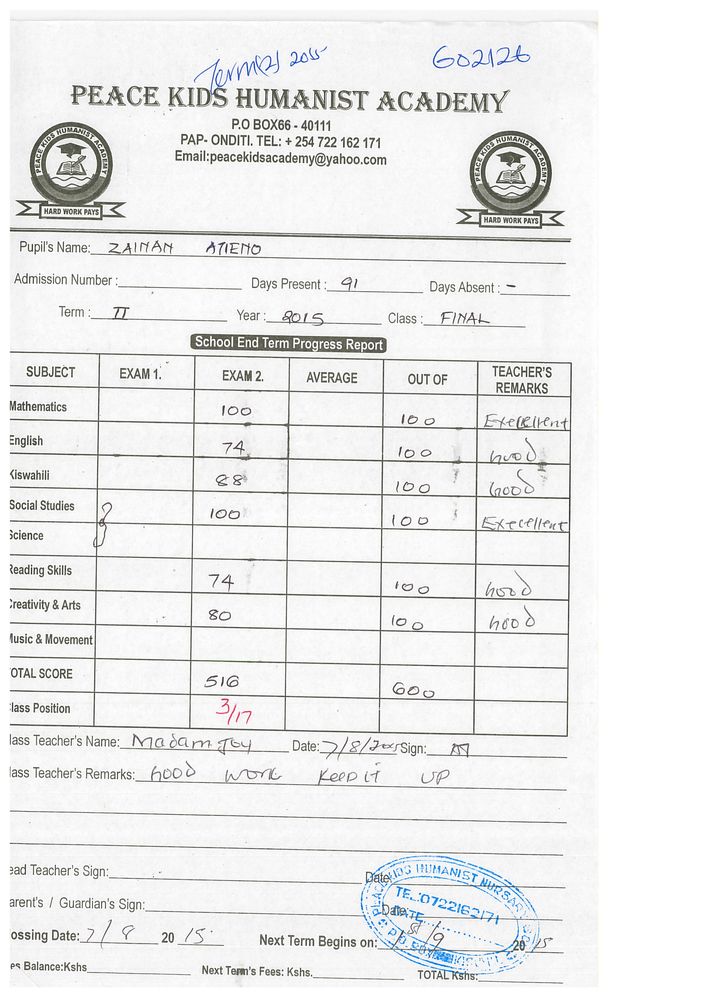 Term(2) 2015
602126
PEACE KIDS HUMANIST ACADEMY
P.O BOX66 - 40111
PAP- ONDITI. TEL: + 254 722 162 171
Email:peacekidsacademy@yahoo.com
PEACE KIDS HUMANIST ACADEMY
HARD WORK PAYS
PEACE KIDS HUMANIST ACADEMY
HARD WORK PAYS
Pupil's Name: ZAINAN ATIENO
Admission Number : Days Present : 91 Days Absent : -
Term : II Year : 2015 Class : FINAL
School End Term Progress Report
SUBJECT EXAM 1. EXAM 2. AVERAGE OUT OF TEACHER'S REMARKS
Mathematics 100 100 Excellent
English 74 100 Good
Kiswahili 88 100 Good
Social Studies 100 100 Execellent
Science
Reading Skills 74 100 Good
Creativity & Arts 80 100 Good
Music & Movement
OTAL SCORE 516 600
lass Position 3/17
lass Teacher's Name: Madam Joy Date: 7/8/2015 Sign:
lass Teacher's Remarks: Good work keep it up
ead Teacher's Sign: Date
arent's / Guardian's Sign: Date
lossing Date: 7/8 20 15 Next Term Begins on: 1st/9 20 15
es Balance:Kshs Next Term's Fees: Kshs. TOTAL Kshs:
PEACE KIDS HUMANIST NURSARY
TEL:0722162171
DATE